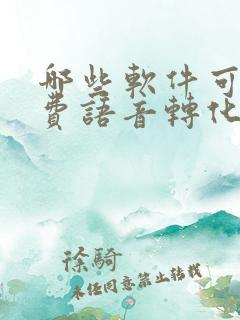 哪些軟件可
費語音轉化
徐騎
未經同意禁止轉載